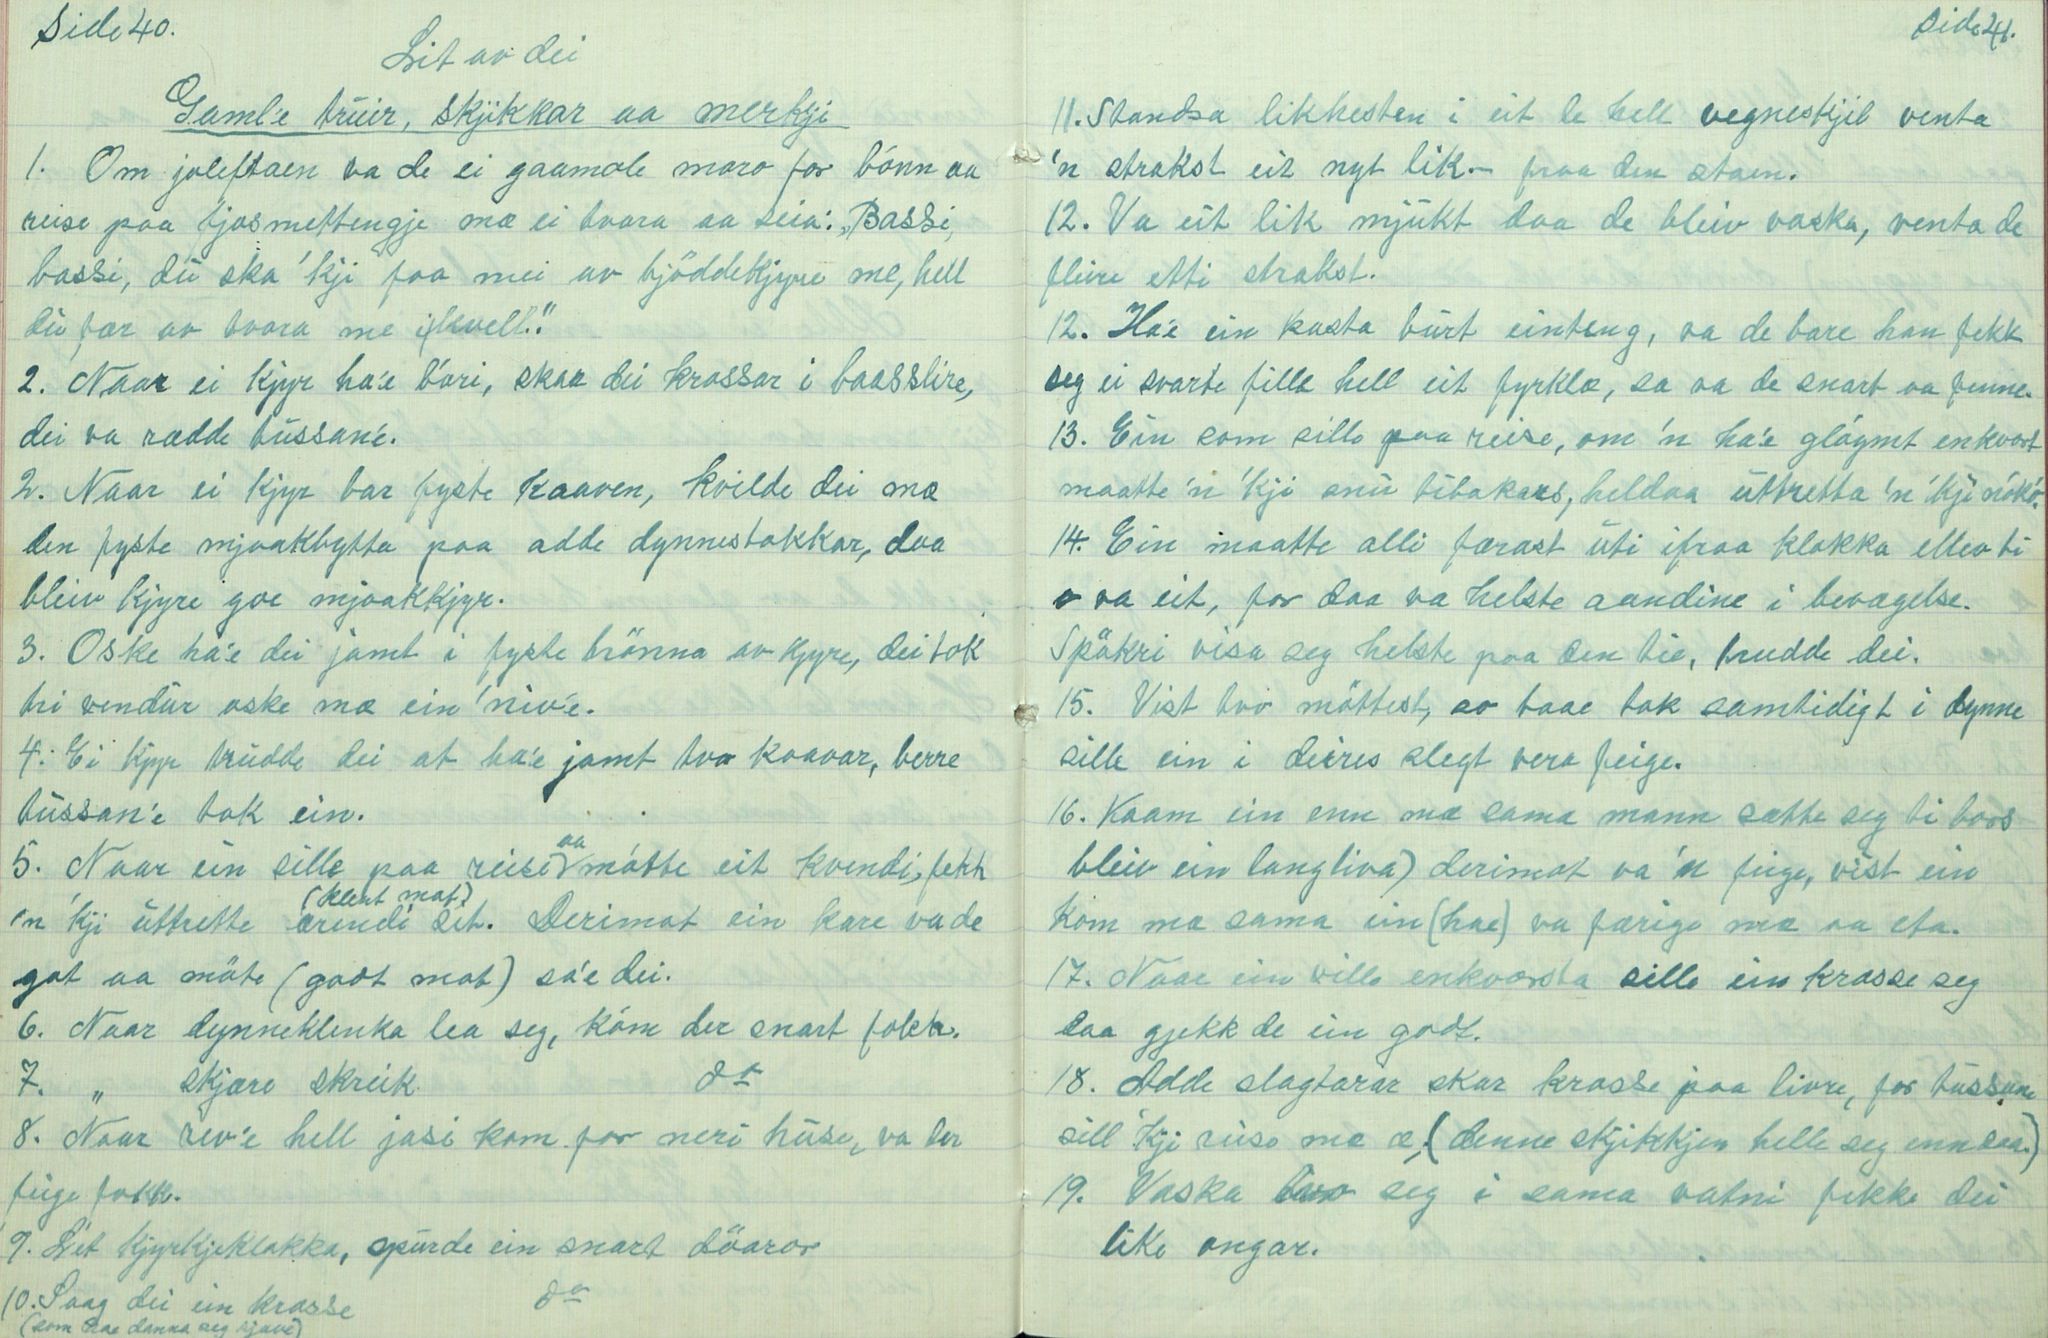 Side 40.
Lit av dei
Gaml'e trúir, skjikkar aa merkji
1. Om joleftaen va de ei gaamole moro for bónn aa
reise paa fjosmettengje mæ ei tvora aa seia: „Bassi,
bassi, dú ska 'kji faa mei av bjöddekjyre me, hell
dú fær av tvora me i kvell."
2. Naar ei kjyr ha'e bóri, skaa dei krossar i baasslire,
dei va rædde tússan'e.
2. Naar ei kjyr bar fyste kaaven, kvilde dei mæ
den fyste mjoakbytta paa adde dynnestokkar, daa
bleiv kjyre goe mjoakkjyr.
3. Oske ha'e dei jamt i fyste brönna av kjyre, dei tok
tri vendúr oske mæ ein 'niv'e.
4. Ei kjyr trúdde dei at ha'e jamt tvo kaavar, berre
tússan'e tok ein.
5. Naar ein sille paa reise aa mótte eit kvendi, fekk
(klent mot)
'n 'kji úttrette ærendi set. Derimot ein kare va de
got aa möte (godt mot) sa'e dei.
6. Naar dynneklenka lea seg, kóm der snart fokk.
7. „ skjæro skreik do
8. Naar rev'e hell jasi kom for neri húse, va der
feige fokk.
9. Let kjyrkjeklokka, spúrde ein snart döaror
10. Saag dei ein krosse do
(som hae danna seg sjave)
side 41.
11. Standsa likhesten i eit le hell vegneskjil venta
'n strakst eit nyt lik.- fraa den staen.
12. Va eit lik mjúkt daa de bleiv vaska, venta de
fleire etti strakst.
12. Ha'e ein kasta búrt einteng, va de bare han fekk
seg ei svarte fille hell eit fyrklæ, sa va de snart aa fenne.
13. Ein som sille paa reise, om 'n ha'e glóymt enkvort
maatte 'n 'kji snú tibakars, heldaa úttretta 'n 'kji nókó.
14. Ein maatte alli færast úti ifraa klokka ellev ti
va eit, for daa va helste aandine i bevægelse.
Spökri visa seg helste paa den tie, trudde dei.
15. Vist tvo möttest, so baae tok samtidigt i dynne
sille ein i deires slegt vera feige.
16. Kaam ein enn mæ sama mann sætte seg ti bors
bleiv ein langliva) derimot va 'n feige, vist ein
kom mæ sama ein (hae) va færige mæ aa eta.
17. Naar ein ville enkvorsta sille ein krosse seg
daa gjekk de ein godt.
18. Adde slagtarar skar krosse paa livre, for tússane
sill 'kji reise mæ æ, (denne skjikkjen helle seg enn daa.)
19. Vaska tvo seg i sama vatni fekke dei
like ongar.